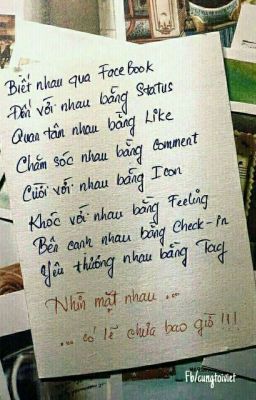 Biết nhau qua FaceBook
Đến với nhau bằng Status
Quan tâm nhau bằng Like
Chăm sóc nhau bằng Comment
Cười với nhau bằng Icon
Khóc với nhau bằng Feeling
Bên cạnh nhau bằng Check-in
Yêu thương nhau bằng Tag
Nhìn mặt nhau ...
... có lẽ chưa bao giờ !!!
Fb/cungtoiviet